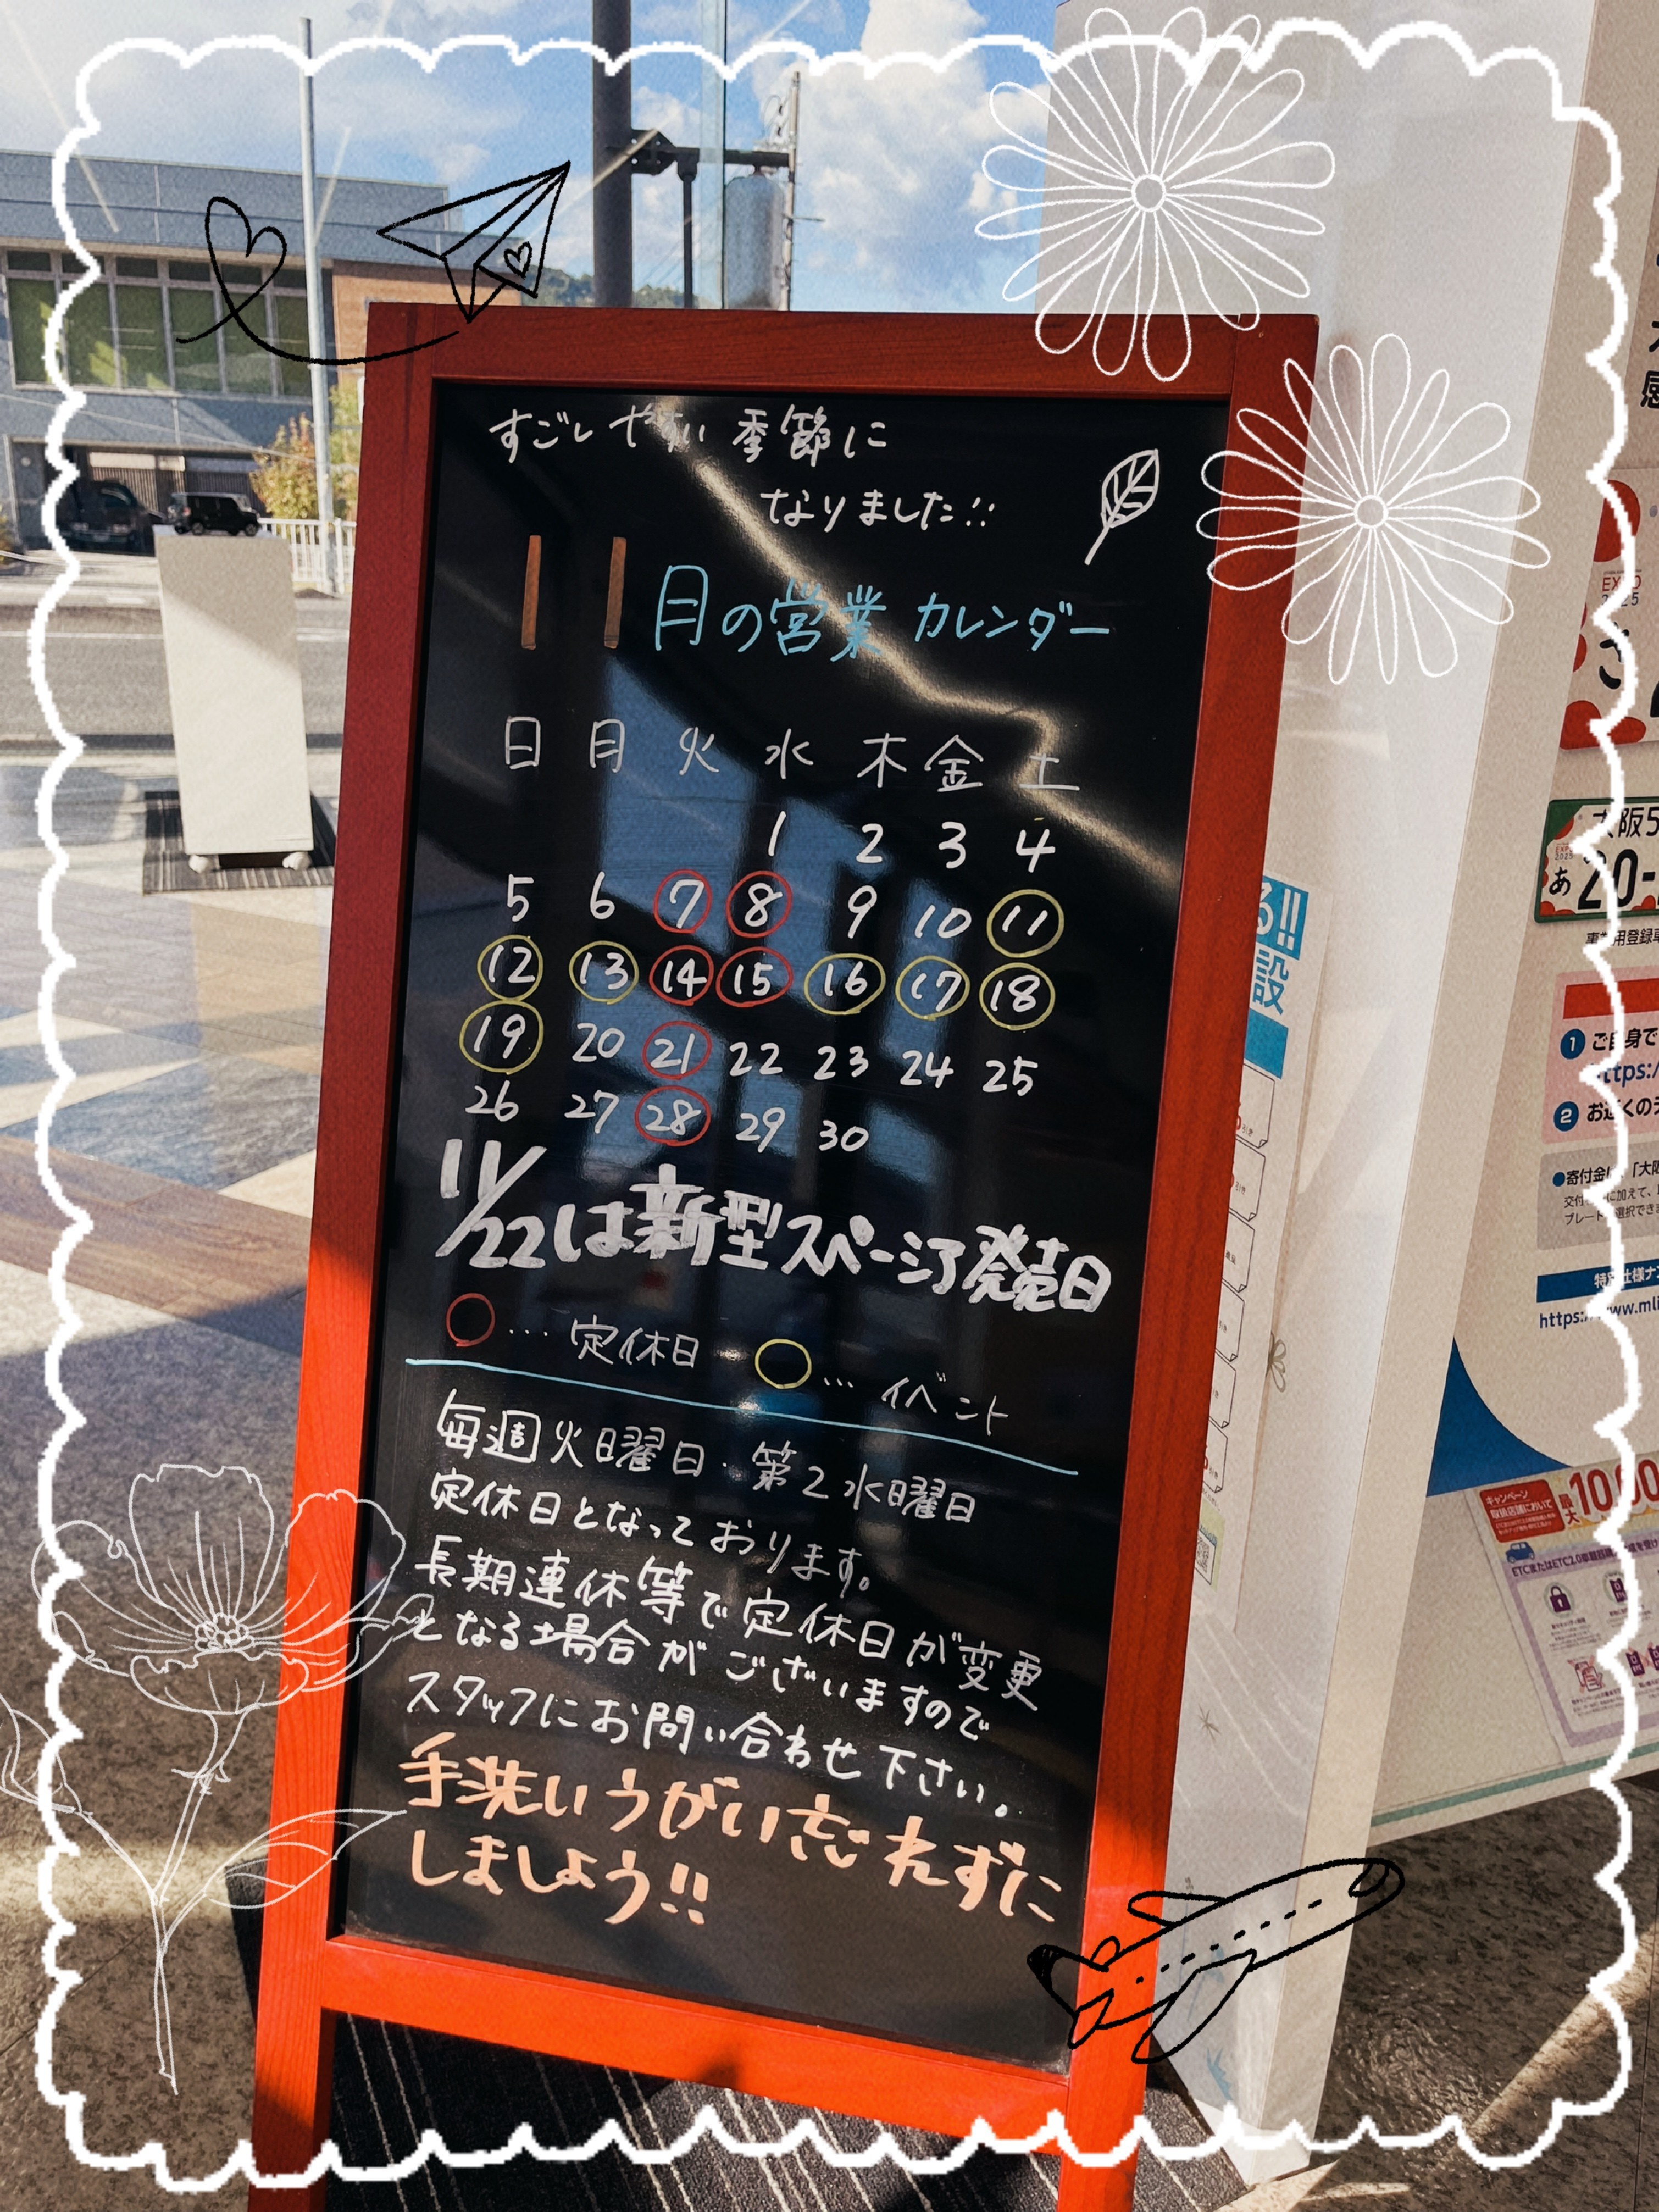 すごしやすい季節に
なりました!!
11月の営業カレンダー
日 月 火 水 木 金 土
1 2 3 4
5 6 7 8 9 10 11
12 13 14 15 16 17 18
19 20 21 22 23 24 25
26 27 28 29 30
11/22は新型スペーシア発売日
○…. 定休日 ○… イベント
毎週火曜日・第2水曜日
定休日となっております。
長期連休等で定休日が変更
となる場合がございますので
スタッフにお問い合わせ下さい。
手洗いうがい忘れずに
しましょう!!
る!!
設
EXPO
2025
さ
大阪5
あ 20-
1 ご自身で
https:/
2 お近くのデ
●寄付金は、「大阪
https://www.mli
キャンペーン
取扱店舗において
最大